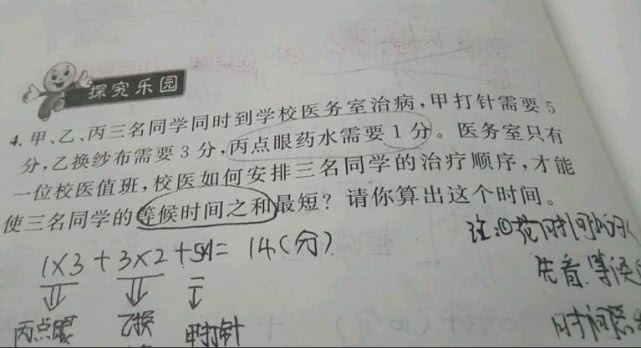 探究乐园
4. 甲、乙、丙三名同学同时到学校医务室治病，甲打针需要 5
分，乙换纱布需要 3 分，丙点眼药水需要 1 分。医务室只有
一位校医值班，校医如何安排三名同学的治疗顺序，才能
使三名同学的等候时间之和最短？请你算出这个时间。
1×3 + 3×2 + 5×1 = 14(分)
注:①花时间
先看.等候
丙点眼 乙换 甲打针
时间